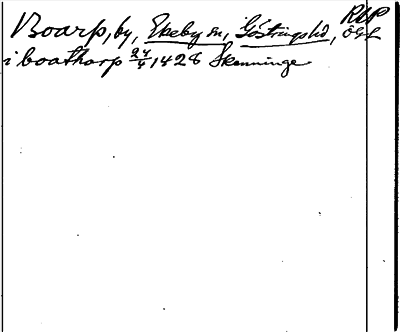 Boarp, by, Ekeby sn, Göstringshd, ÖGL
RAP
i boathorp 24/4 1428 Skenninge